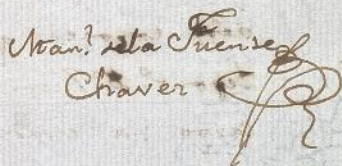 Man.l de la Fuense
Chaver